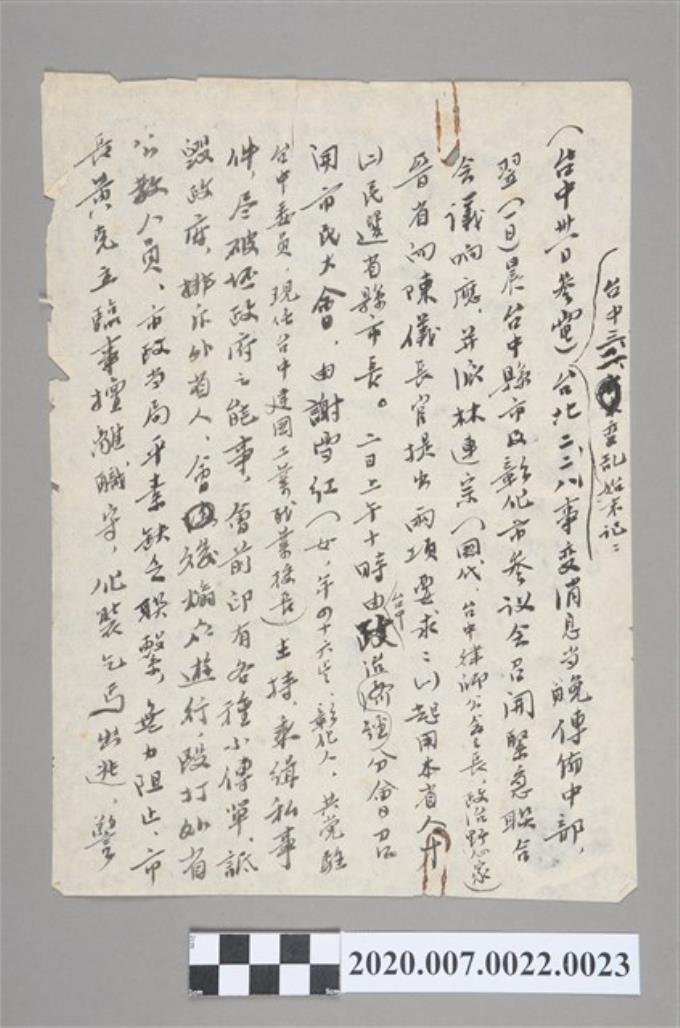 台中三二事變亂始末記：
（台中卅一日參電）台北二二八事變消息當晚傳佈中部，
翌（一日）晨台中縣市及彰化市參议会召開緊急联合
会議响應，并派林連宗（国代，台中律師公会会長，政治野心家）
晉省向陳儀長官提出兩項要求：㈠起用本省人才
㈡民選省縣市長。二日上午十時由台中政治經分會召
開市民大會，由謝雪红（女，年四十六岁，彰化人，共党駐
台中委員，現任台中建国工業職業校長）主持，乘缉私事
件，尽破坯政府之能事，會前即有各種小傳單，詆
毀政府，排斥外省人，會後煽众遊行，毆打外省
公教人員，市政当局平素缺乏联繫，無力阻止，市
長黃克立臨事擅離職守，化裝乞丐出逃，警
2cm
0cm
5cm
2020.007.0022.0023